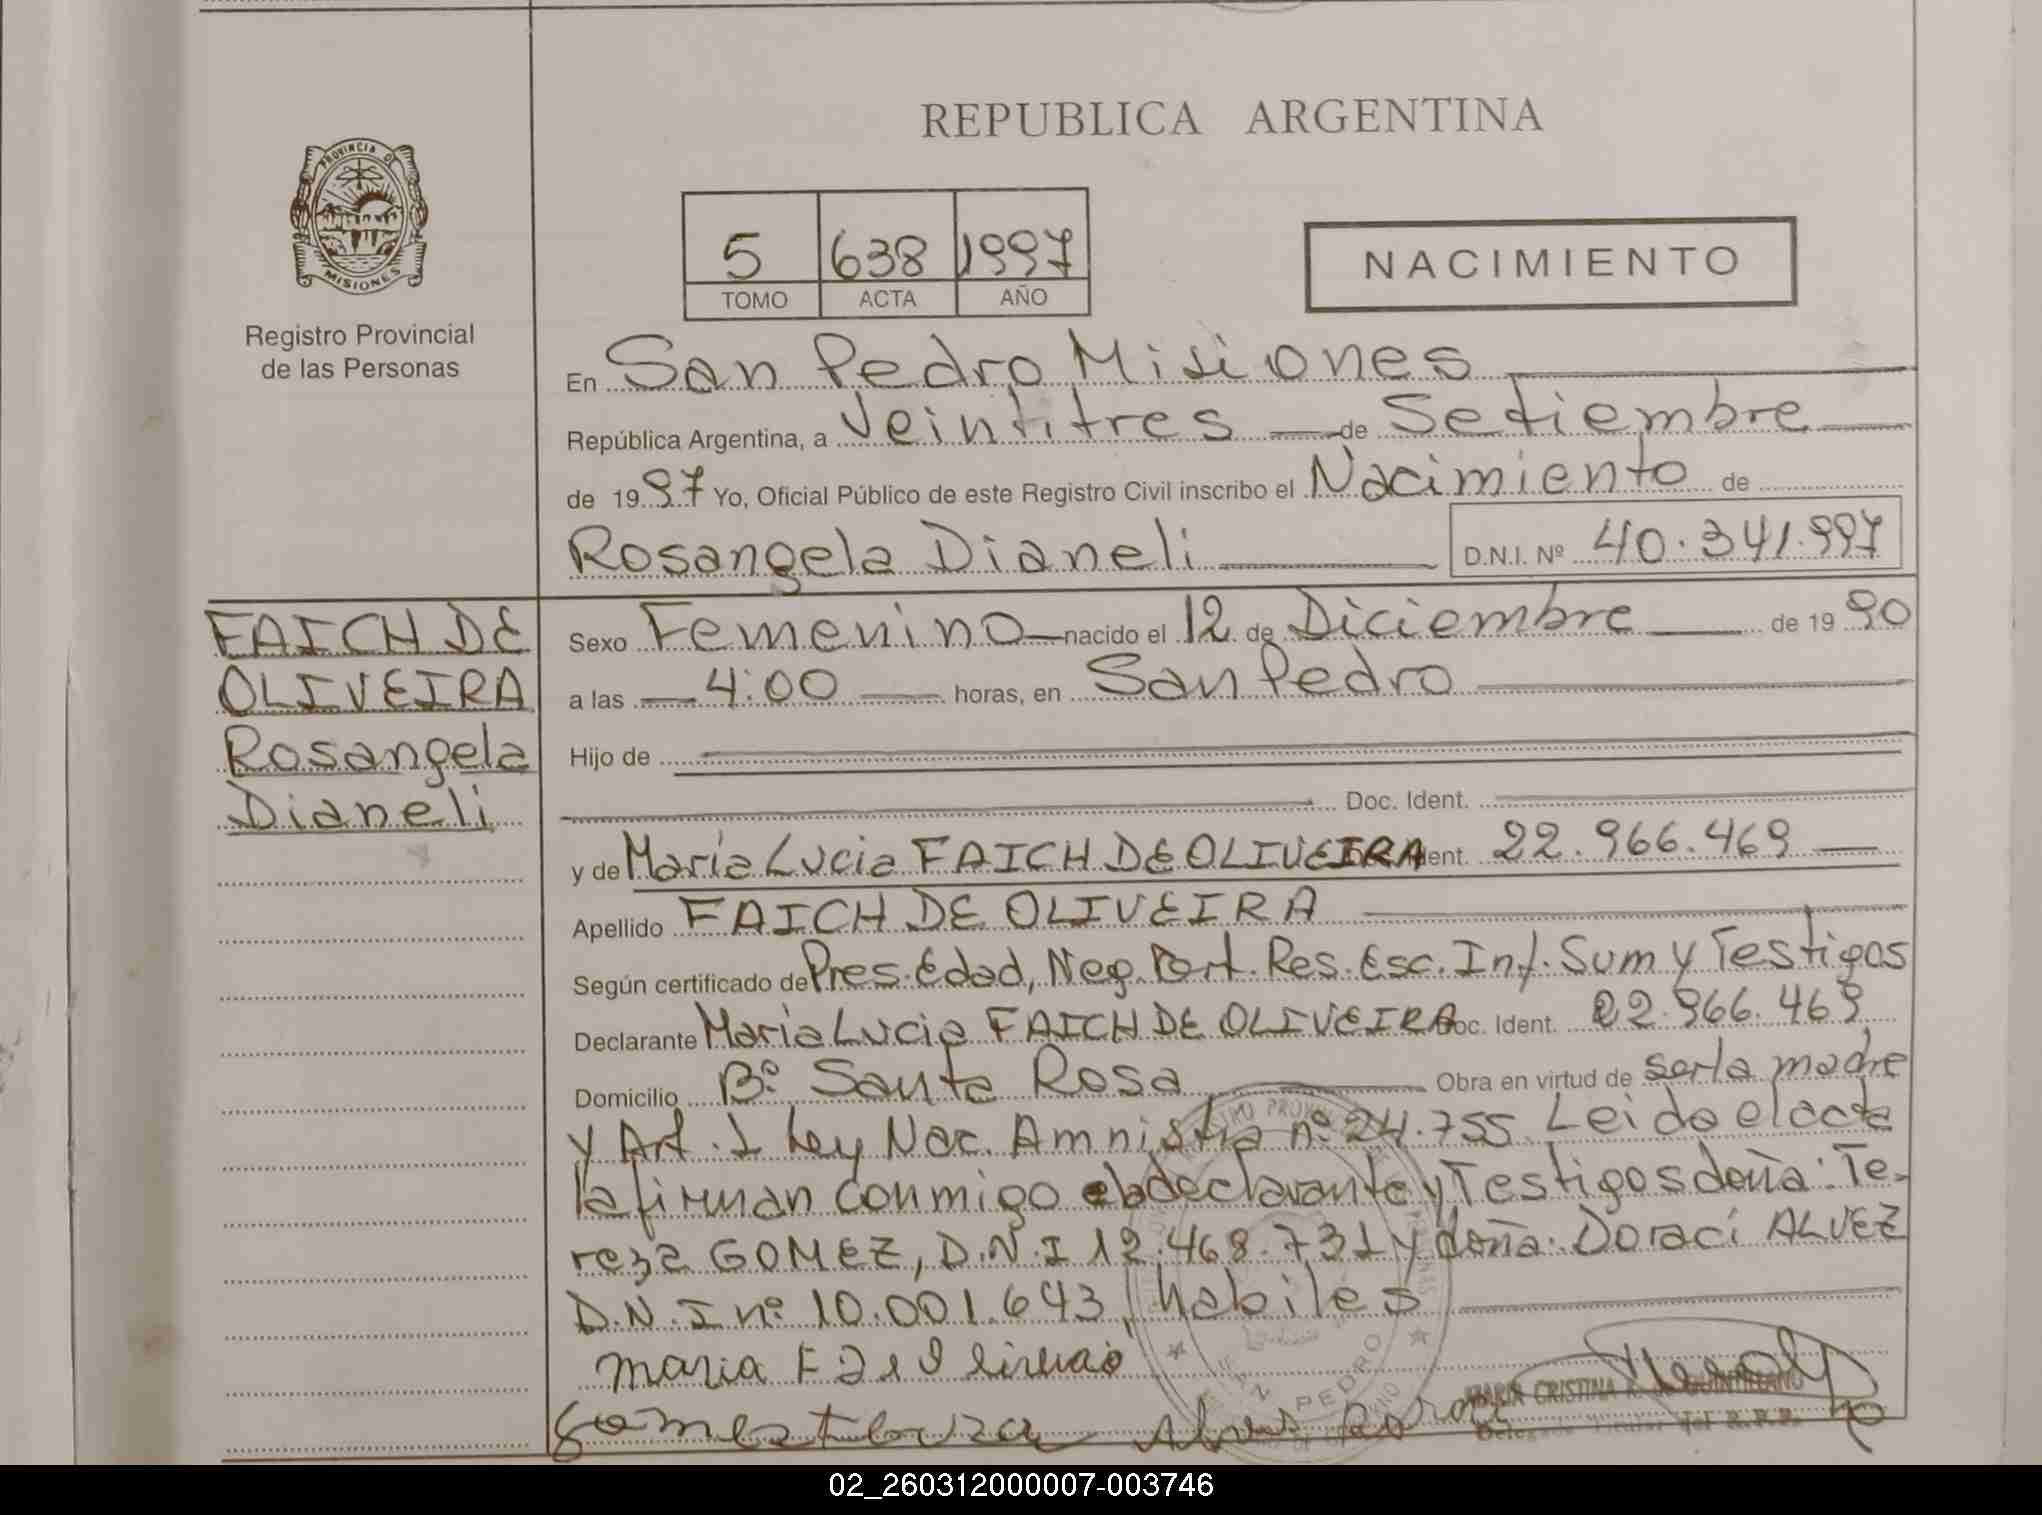 REPUBLICA ARGENTINA
PROVINCIA D
MISIONES
Registro Provincial
de las Personas
5 638 1997
TOMO ACTA AÑO
NACIMIENTO
En San Pedro Misiones
República Argentina, a Veintitres de Setiembre
de 1997 Yo, Oficial Público de este Registro Civil inscribo el Nacimiento de
Rosangela Dianeli D.N.I. Nº 40.341.997
FAICH DE
OLIVEIRA
Rosangela
Dianeli
Sexo Femenino nacido el 12 de Diciembre de 1990
a las 4:00 horas, en San Pedro
Hijo de
Doc. Ident.
y de Maria Lucia FAICH DE OLIVEIRA ent. 22.966.469
Apellido FAICH DE OLIVEIRA
Según certificado de Pres. Edad, Neg. Part. Res. Esc. Inf. Sum y Testigos
Declarante Maria Lucia FAICH DE OLIVEIRA Doc. Ident. 22.966.469
Domicilio Bº Santa Rosa Obra en virtud de ser la madre
y Art. 1 Ley Nac. Amnistia nº 24.755 Leido el acta
la firman conmigo la declarante y Testigos doña: Te-
reza GOMEZ, D.N.I 12.468.731 y doña: Doraci ALVEZ
D.N.I nº 10.001.643, habiles
maria F D
MARIA CRISTINA QUINTILLANO
Delegada Titular del R.P.P.
SAN PEDRO
02_260312000007-003746